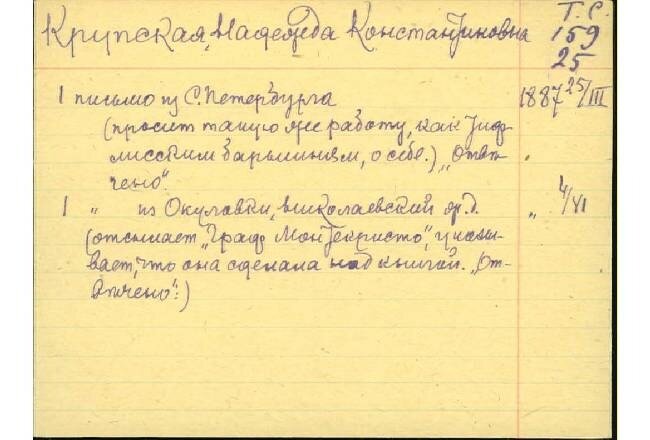 Крупская, Надежда Константиновна
Т.С.
159
25
1 письмо из С.Петербурга 1887 25/III
(просит такую же работу, как Тиф-
лисским барышням, о себе.) „Отве-
чено".
1 „ из Окуловки, Николаевской ж.д. „ 4/VI
(отсылает „Граф Монтекристо", указы-
вает, что она сделала над книгой. „От-
вечено".)